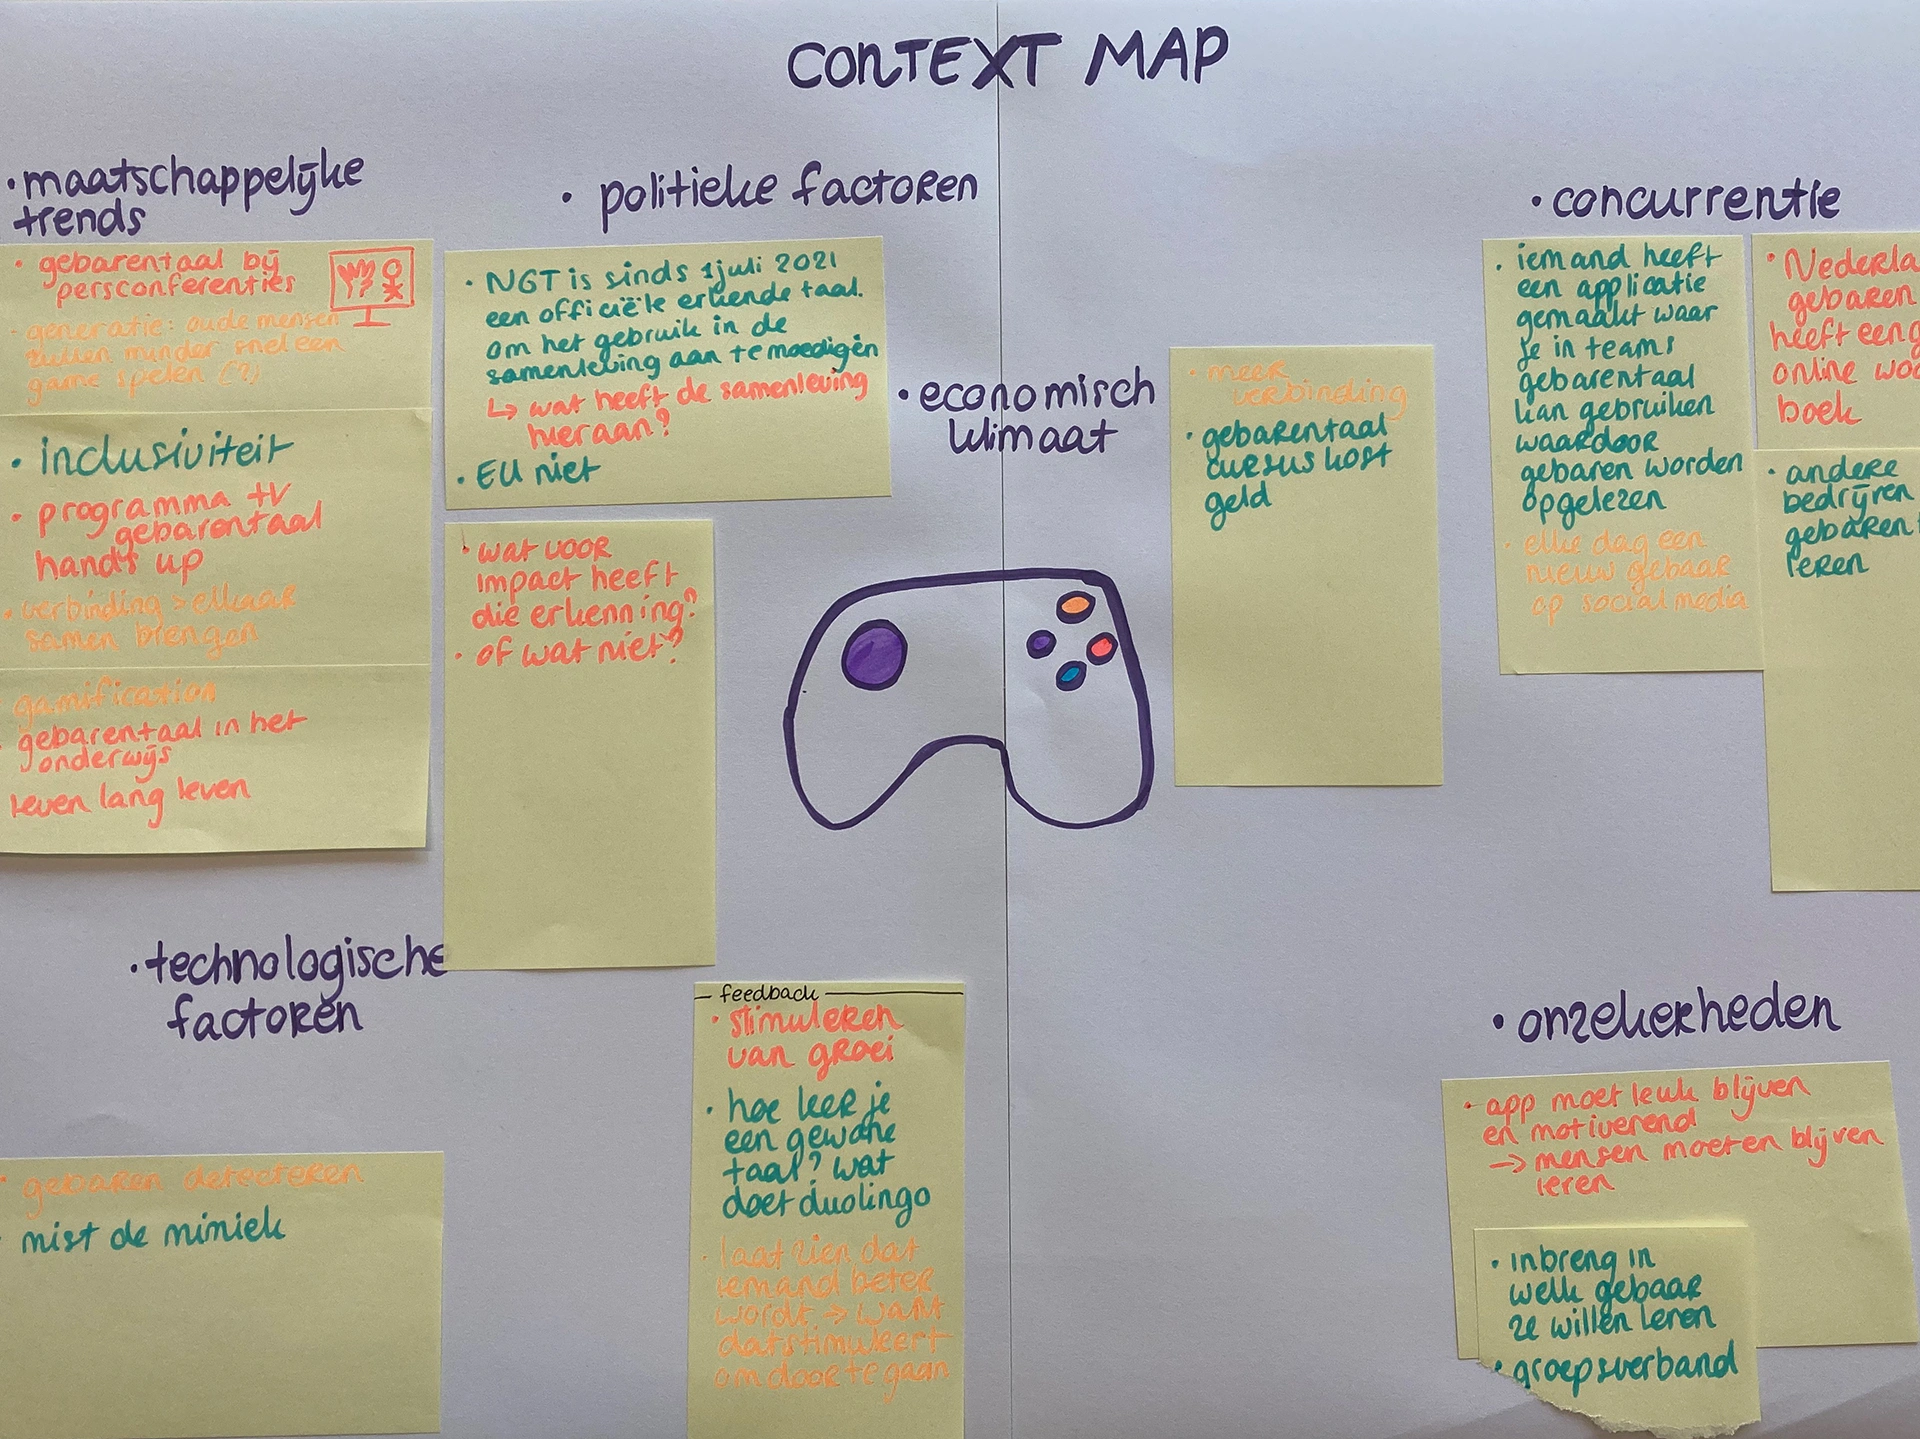 CONTEXT MAP
• maatschappelijke
trends
• gebarentaal bij
persconferenties
• generatie: oude mensen
zullen minder snel een
game spelen (?)
• inclusiviteit
• programma tv
gebarentaal
hands up
• verbinding > elkaar
samen brengen
gamification
• gebarentaal in het
onderwijs
leven lang leven
• politieke factoren
• NGT is sinds 1 juli 2021
een officiële erkende taal.
om het gebruik in de
samenleving aan te moedigen
↳ wat heeft de samenleving
hieraan?
• EU niet
• wat voor
impact heeft
die erkenning?
• of wat niet?
• economisch
klimaat
• meer
verbinding
• gebarentaal
cursus kost
geld
• concurrentie
• iemand heeft
een applicatie
gemaakt waar
je in teams
gebarentaal
kan gebruiken
waardoor
gebaren worden
opgelezen
• elke dag een
nieuw gebaar
op social media
• Nederla
gebaren
heeft een
online woo
boek
• andere
bedrijven
gebaren
leren
• technologische
factoren
• gebaren detecteren
mist de mimiek
feedback
• stimuleren
van groei
• hoe leer je
een gewone
taal? wat
doet duolingo
• laat zien dat
iemand beter
wordt → want
dat stimuleert
om door te gaan
• onzekerheden
• app moet leuk blijven
en motiverend
→ mensen moeten blijven
leren
• inbreng in
welk gebaar
ze willen leren
• groepsverband